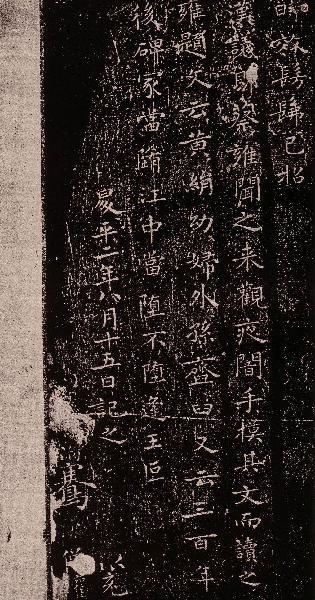 時效髣髴以昭
漢議郎蔡雍聞之來觀夜闇手摸其文而讀之
雍題文云黃絹幼婦外孫齏臼又云三百年
後碑冢當墮江中當墮不墮逢王叵
昇平二年八月十五日記之